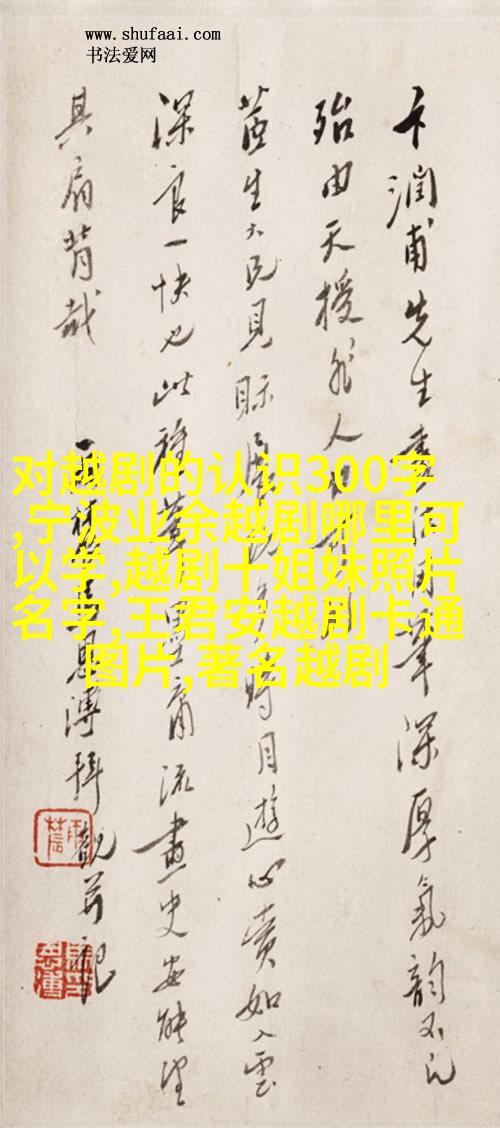 www.shufaai.com
书法爱网
对越剧的认识300字
,宁波业余越剧哪里可
以学,越剧十姐妹照片
名字,王君安越剧卡通
图片,著名越剧
卞潤甫先生筆深厚氣韻不凡
殆由天授非人
生大兄見眎時目遊心賞如入雲
深良一快也此種庸流畫史安能望
其肩背哉
拜觀并記